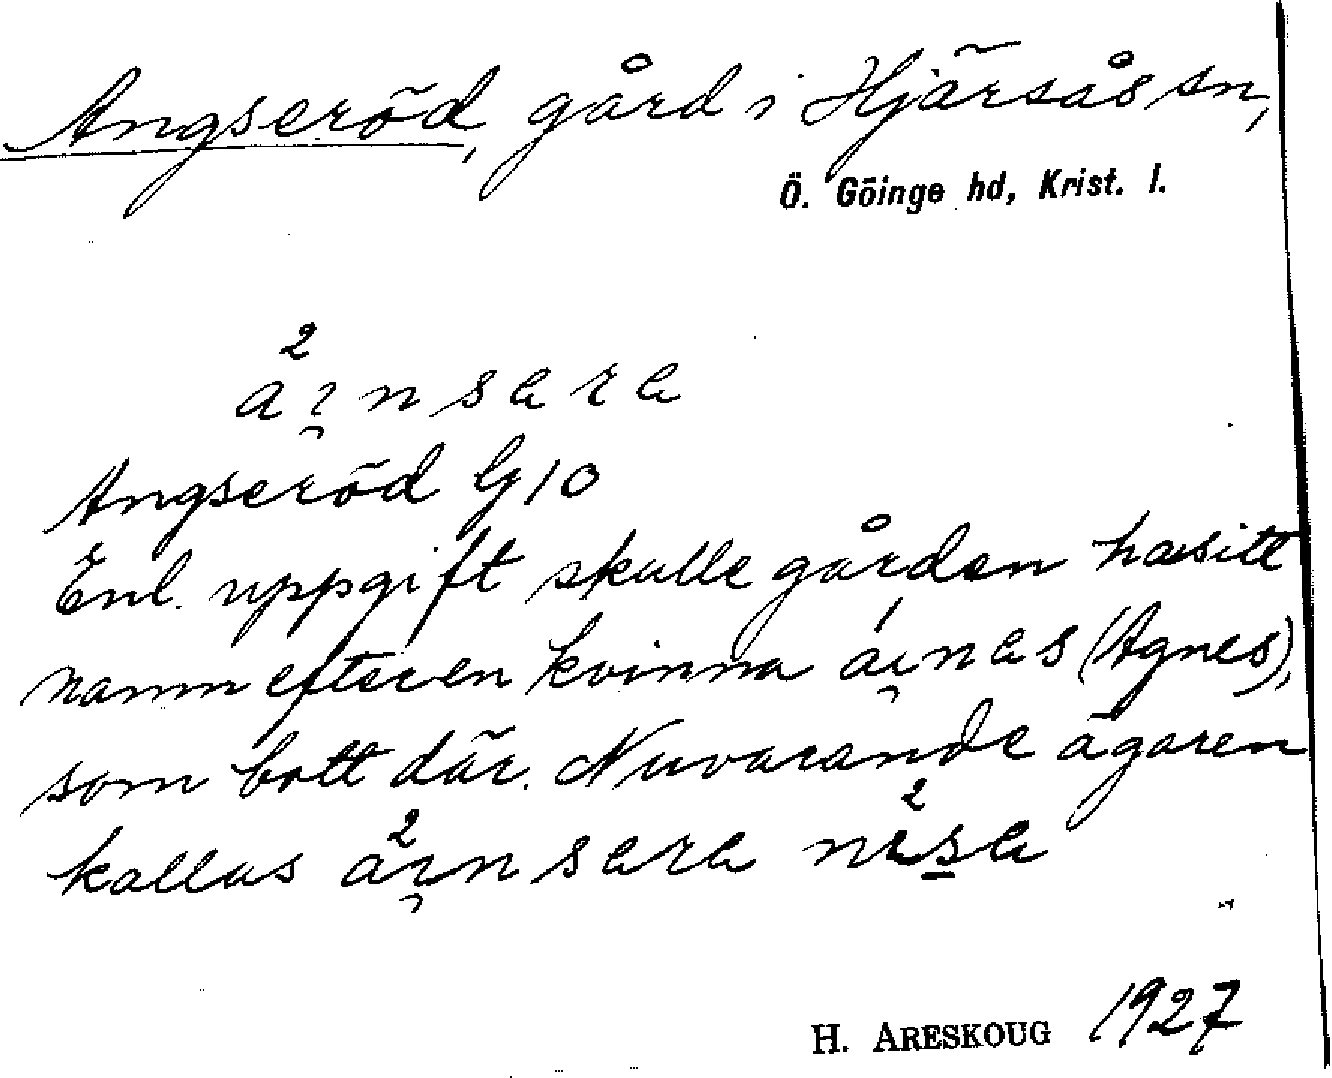 Angseröd, gård i Hjärsås sn,
Ö. Göinge hd, Krist. l.
Angseröd G 10
Enl. uppgift skulle gården ha sitt
namn efter en kvinna (Agnes),
som bott där. Nuvarande ägaren
kallas
H. ARESKOUG 1927